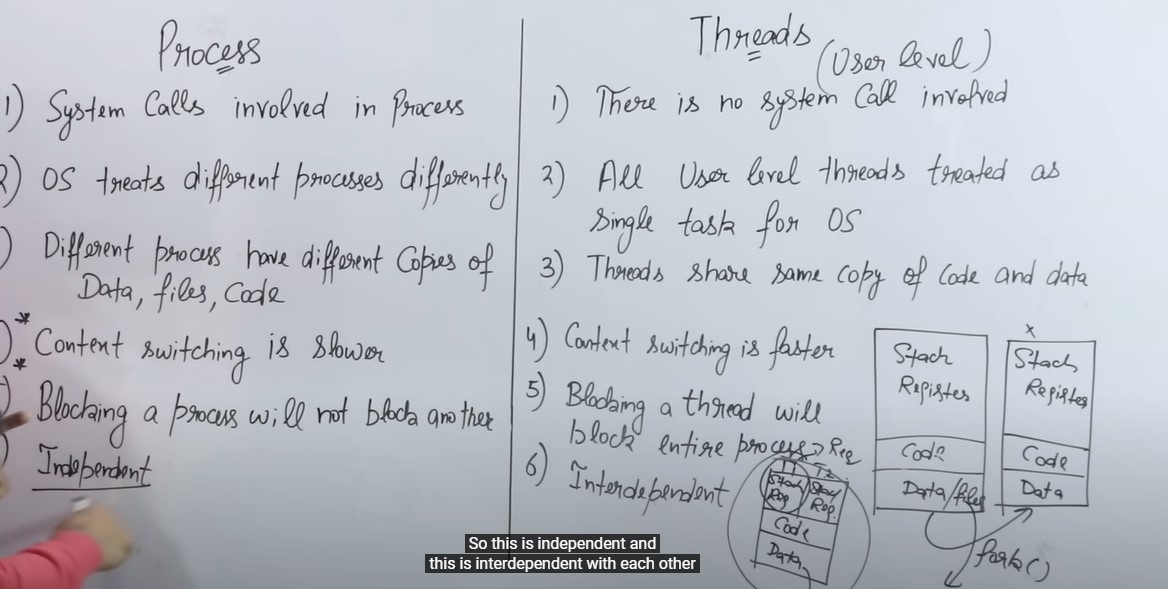 Process
1) System Calls involved in Process
2) OS treats different processes differently
) Different process have different Copies of
Data, files, Code
)* Context switching is slower
* Blocking a process will not block another
Independent
Threads
(User level)
1) There is no system call involved
2) All User level threads treated as
single task for OS
3) Threads share same copy of code and data
4) Context switching is faster
5) Blocking a thread will
block entire process → Req
6) Interdependent
T1 T2
Stack Stack
Reg Reg.
Code
Data
Stack
Registes
Code
Data/files
x
Stack
Registes
Code
Data
fork()
So this is independent and
this is interdependent with each other